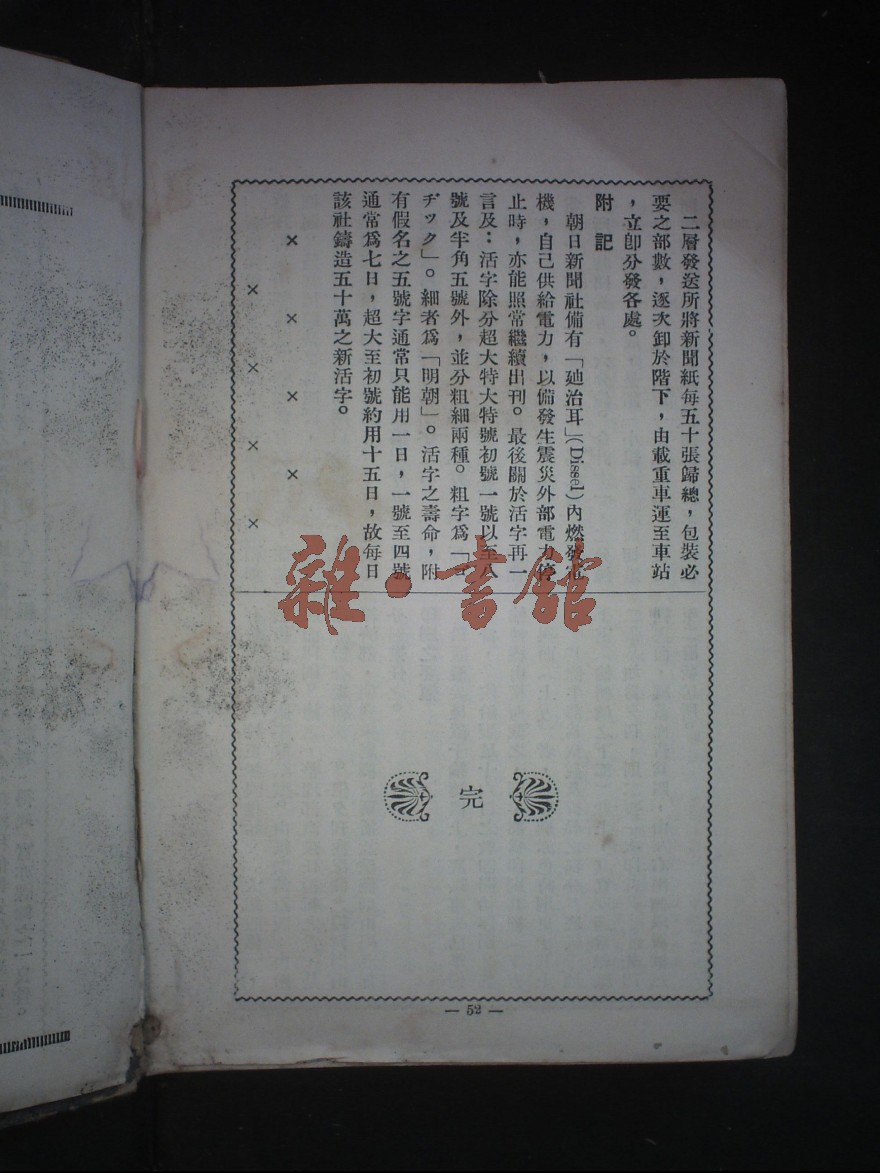 二層發送所將新聞紙每五十張歸總，包裝必
要之部數，逐次卸於階下，由載重車運至車站
，立卽分發各處。
附記
朝日新聞社備有「廸治耳」(Dissel)內燃發電
機，自己供給電力，以備發生震災外部電力停
止時，亦能照常繼續出刊。最後關於活字再一
言及：活字除分超大特大特號初號一號以至八
號及半角五號外，並分粗細兩種。粗字爲「
ヂック」。細者爲「明朝」。活字之壽命，附
有假名之五號字通常只能用一日，一號至四號
通常爲七日，超大至初號約用十五日，故每日
該社鑄造五十萬之新活字。
× × × ×
× × × ×
完
— 52 —
雜·書館